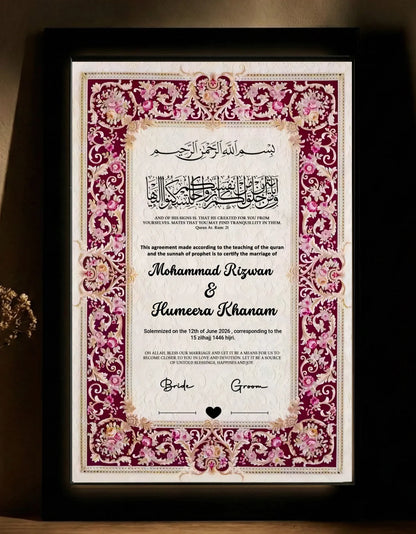 بِسْمِ اللَّهِ الرَّحْمَٰنِ الرَّحِيمِ
ومن آياته أن خلق لكم من أنفسكم أزواجا لتسكنوا إليها
AND OF HIS SIGNS IS, THAT HE CREATED FOR YOU FROM
YOURSELVES, MATES THAT YOU MAY FIND TRANQUILITY IN THEM.
Quran Ar. Rum: 21
This agreement made according to the teaching of the quran
and the sunnah of prophet is to certify the marriage of
Mohammad Rizwan
&
Humeera Khanam
Solemnized on the 12th of June 2026 , corresponding to the
15 zilhajj 1446 hijri.
OH ALLAH, BLESS OUR MARRIAGE AND LET IT BE A MEANS FOR US TO
BECOME CLOSER TO YOU IN LOVE AND DEVOTION. LET IT BE A SOURCE
OF UNTOLD BLESSINGS, HAPPINES AND JOY.
Bride Groom